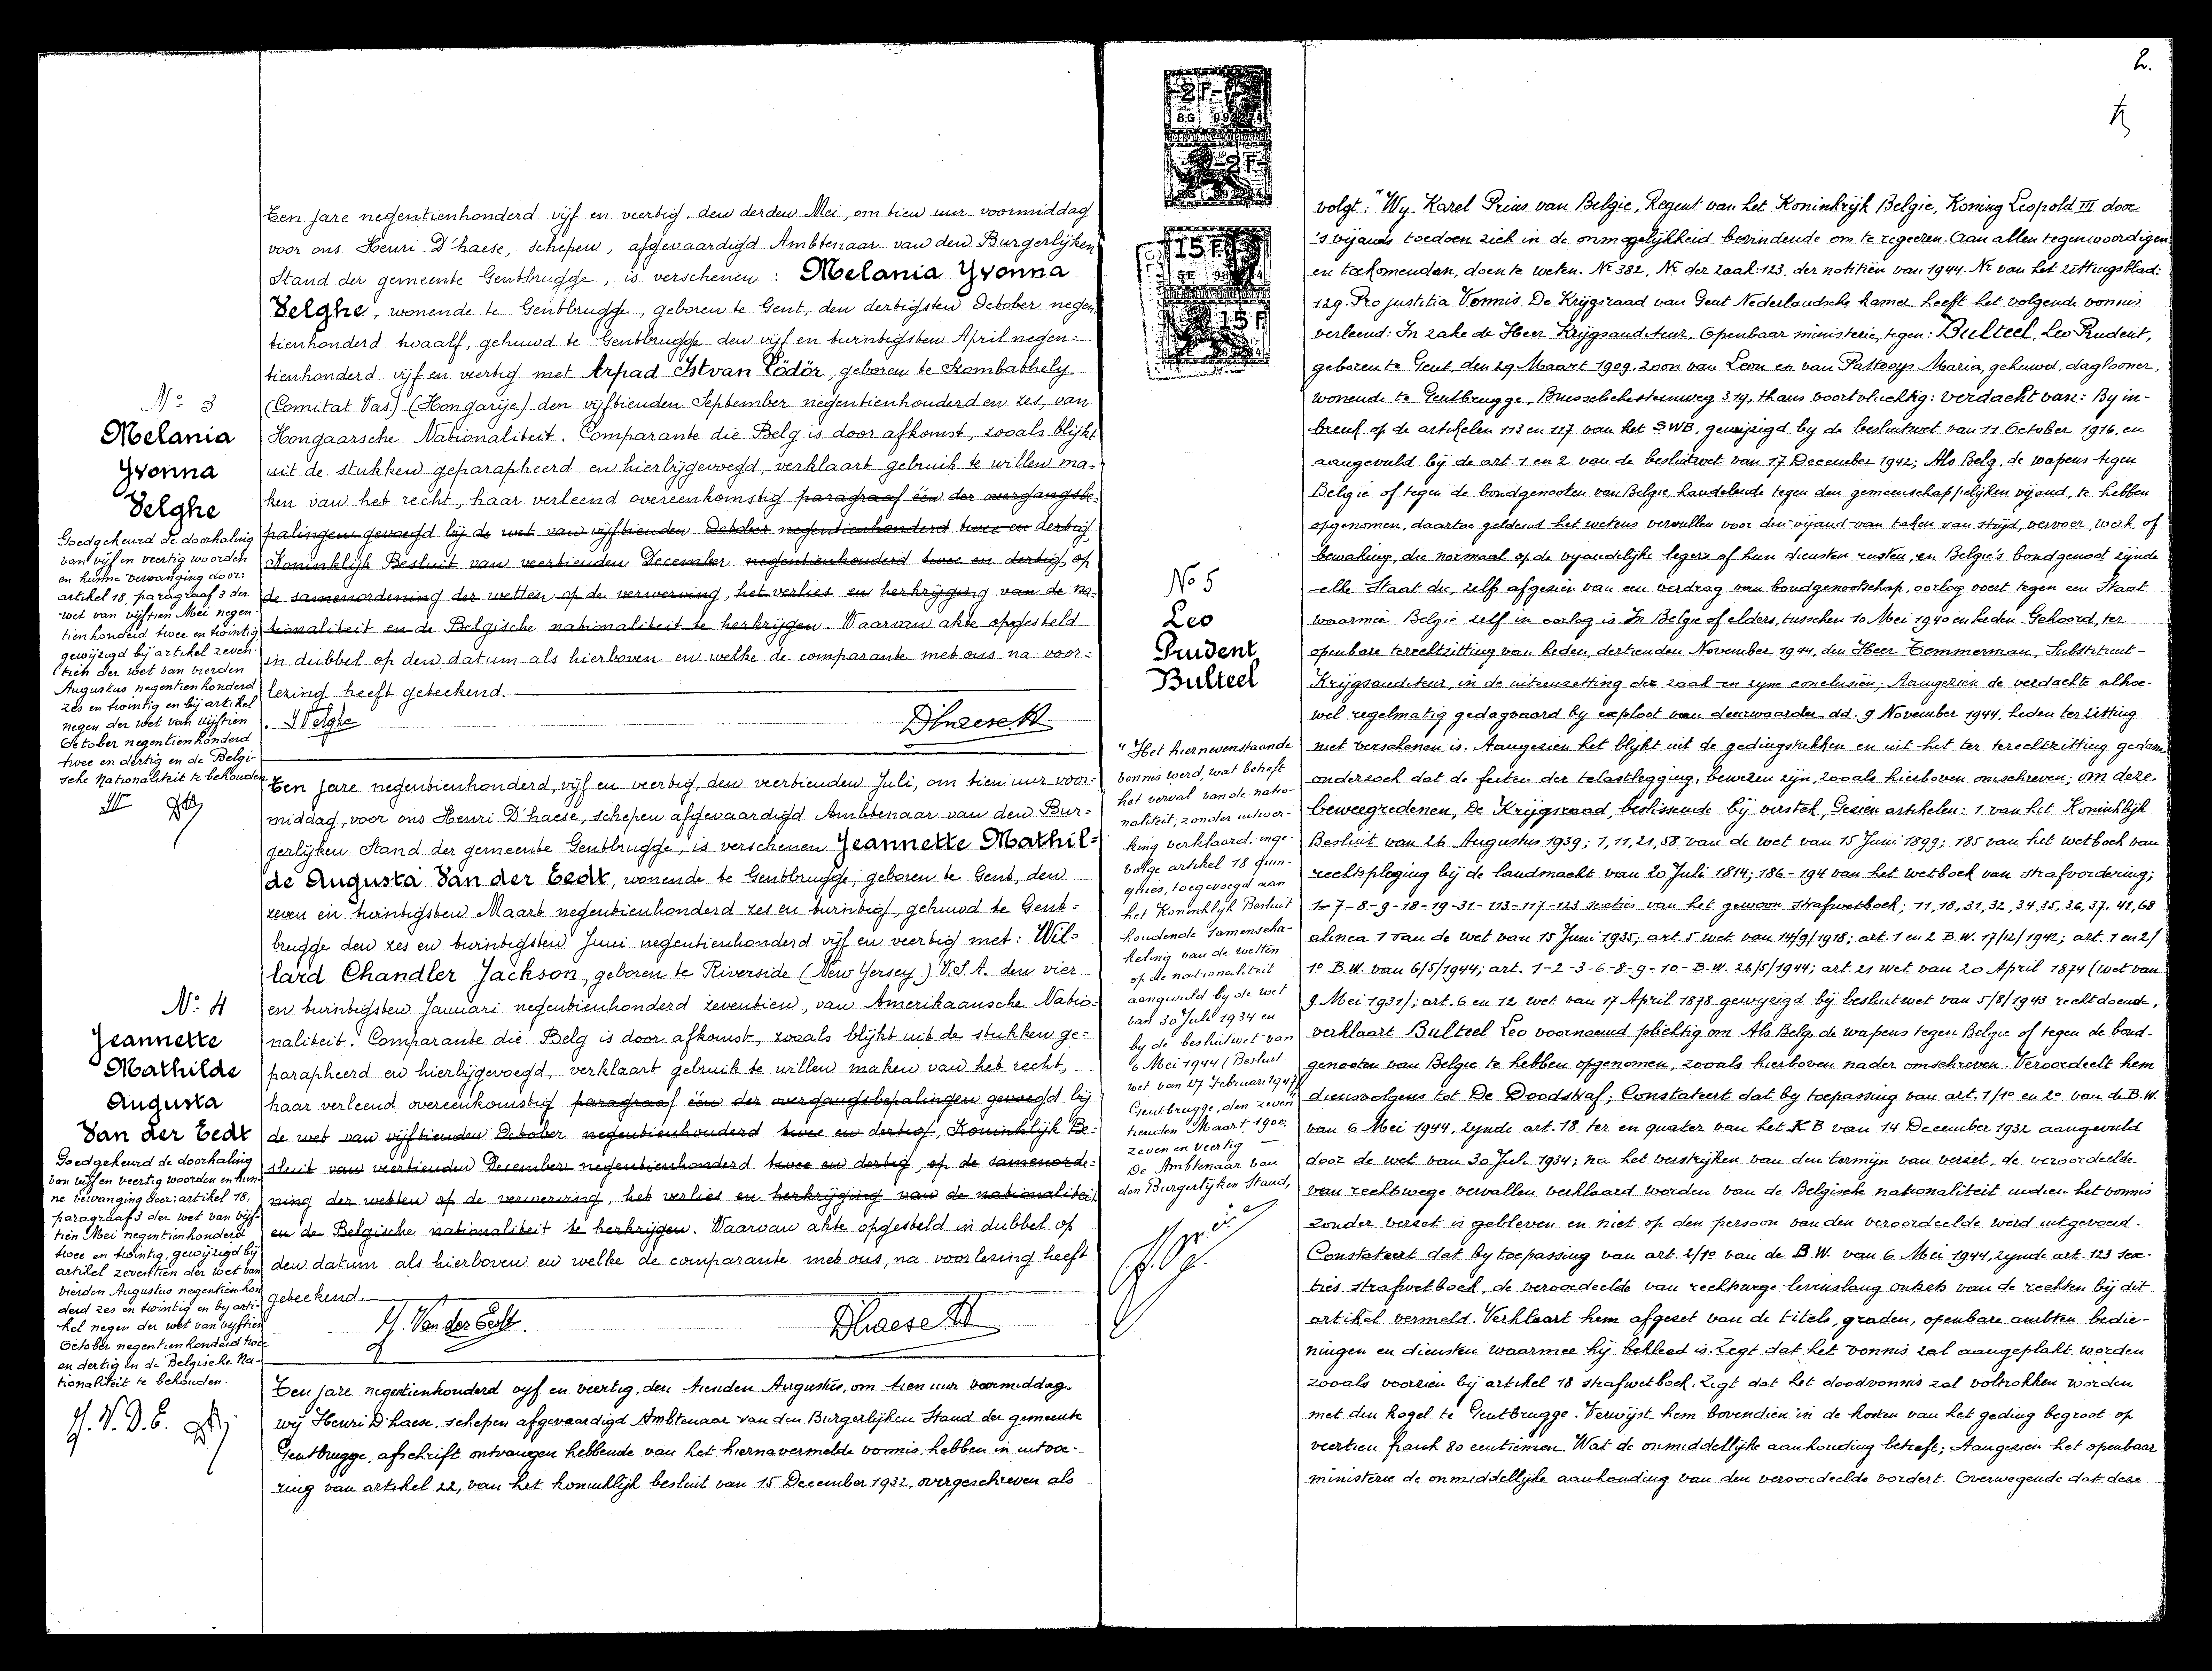 Nº 3
Melania
Yvonna
Velghe
Goedgekeurd de doorhaling
van vijf en veertig woorden
en hunne vervanging door:
artikel 18, paragraaf 3 der
wet van vijftien Mei negen-
tienhonderd twee en twintig
gewijzigd bij artikel zeven-
tien der wet van vierden
Augustus negentienhonderd
zes en twintig en bij artikel
negen der wet van vijftien
October negentienhonderd
twee en dertig en de Belgi-
sche Nationaliteit te behouden.
Een jare negentienhonderd vijf en veertig, den derden Mei, om tien uur voormiddag
voor ons Henri D'haese, schepen, afgevaardigd Ambtenaar van den Burgerlijken
Stand der gemeente Gentbrugge, is verschenen: Melania Yvonna
Velghe, wonende te Gentbrugge, geboren te Gent, den dertigsten October negen-
tienhonderd twaalf, gehuwd te Gentbrugge den vijf en twintigsten April negen-
tienhonderd vijf en veertig met Arpad Istvan Födör, geboren te Szombathely
(Comitat Vas) (Hongarije) den vijftienden September negentienhonderd en zes, van
Hongaarsche Nationaliteit. Comparante die Belg is door afkomst, zooals blijkt
uit de stukken geparapheerd en hierbijgevoegd, verklaart gebruik te willen ma-
ken van het recht, haar verleend overeenkomstig paragraaf één der overgangsbe-
palingen gevoegd bij de wet van vijftienden October negentienhonderd twee en dertig,
Koninklijk Besluit van veertienden December negentienhonderd twee en dertig, op
de samenordening der wetten op de verwerving, het verlies en herkrijging van de na-
tionaliteit en de Belgische nationaliteit te herkrijgen. Waarvan akte opgesteld
in dubbel op den datum als hierboven en welke de comparante met ons na voor-
lezing heeft geteekend.
Y Velghe D'haese H
Nº 4
Jeannette
Mathilde
Augusta
Van der Eedt
Goedgekeurd de doorhaling
van vijf en veertig woorden en hun-
ne vervanging door: artikel 18,
paragraaf 3 der wet van vijf-
tien Mei negentienhonderd
twee en twintig, gewijzigd bij
artikel zeventien der wet van
vierden Augustus negentienhon
derd zes en twintig en by arti-
kel negen der wet van vijftien
October negentienhonderd twee
en dertig en de Belgische Na-
tionaliteit te behouden.
J. V. D. E.
Een jare negentienhonderd, vijf en veertig, den veertienden Juli, om tien uur voor-
middag, voor ons Henri D'haese, schepen afgevaardigd Ambtenaar van den Bur-
gerlijken Stand der gemeente Gentbrugge, is verschenen Jeannette Mathil-
de Augusta Van der Eedt, wonende te Gentbrugge, geboren te Gent, den
zeven en twintigsten Maart negentienhonderd zes en twintig, gehuwd te Gent-
brugge den zes en twintigsten Juni negentienhonderd vijf en veertig met: Wil-
lard Chandler Jackson, geboren te Riverside (New Yersey) V.S.A. den vier
en twintigsten Januari negentienhonderd zeventien, van Amerikaansche Natio-
naliteit. Comparante die Belg is door afkomst, zooals blijkt uit de stukken ge-
parapheerd en hierbijgevoegd, verklaart gebruik te willen maken van het recht,
haar verleend overeenkomstig paragraaf één der overgangsbepalingen gevoegd bij
de wet van vijftienden October negentienhonderd twee en dertig, Koninklijk Be-
sluit van veertienden December negentienhonderd twee en dertig, op de samenorde-
ning der wetten op de verwerving, het verlies en herkrijging van de nationaliteit
en de Belgische nationaliteit te herkrijgen. Waarvan akte opgesteld in dubbel op
den datum als hierboven en welke de comparante met ons, na voorlezing heeft
geteekend.
J. Van der Eedt D'haese H
Een jare negentienhonderd vyf en veertig, den tienden Augustus, om tien uur voormiddag.
wij Henri D'haese, schepen afgevaardigd Ambtenaar van den Burgerlijken Stand der gemeente
Gentbrugge, afschrift ontvangen hebbende van het hiernavermelde vonnis, hebben in uitvoe-
ring van artikel 22, van het koninklijk besluit van 15 December 1932, overgeschreven als
2.
2F
2F
15F
15F
Nº 5
Leo
Prudent
Bulteel
"Het hiernevenstaande
vonnis werd, wat betreft
het verval van de natio-
naliteit, zonder uitwer-
king verklaard, inge-
volge artikel 18 quin-
quies, toegevoegd aan
het Koninklyk Besluit
houdende samenscha-
keling van de wetten
op de nationaliteit
aangevuld by de wet
van 30 Juli 1934 en
by de besluitwet van
6 Mei 1944 (Besluit-
wet van 27 Februari 1947)
Gentbrugge, den zeven
tienden Maart 1900
zeven en veertig —
De Ambtenaar van
den Burgerlyken Stand,
volgt: "Wy. Karel Prins van Belgie, Regent van het Koninkrijk Belgie, Koning Leopold III door
's vijands toedoen zich in de onmogelijkheid bevindende om te regeeren. Aan allen tegenwoordigen
en toekomenden, doen te weten. Nr 382, Nr der zaak: 123. der notitiën van 1944. Nr van het zittingsblad:
129. Pro justitia Vonnis. De Krijgsraad van Gent Nederlandsche kamer, heeft het volgende vonnis
verleend: In zake de Heer Krijgsauditeur, Openbaar ministerie, tegen: Bulteel, Leo Prudent,
geboren te Gent, den 29 Maart 1909, zoon van Leon en van Pattoop Maria, gehuwd, daglooner,
wonende te Gentbrugge, Brusselschesteenweg 314, thans voortvluchtig: verdacht van: By in-
breuk op de artikelen 113 en 117 van het SWB, gewijzigd by de besluitwet van 11 October 1916, en
aangevuld bij de art. 1 en 2 van de besluitwet van 17 December 1942; Als Belg, de wapens tegen
Belgie of tegen de bondgenooten van Belgie, handelende tegen den gemeenschappelijken vijand, te hebben
opgenomen, daartoe geldend het wetens vervullen voor den vijand van taken van strijd, vervoer, werk of
bewaking, die normaal op de vyandelijke legers of hun diensten rusten, en Belgie's bondgenoot zijnde
elke Staat die, zelf afgezien van een verdrag van bondgenootschap, oorlog voert tegen een Staat
waarmee Belgie zelf in oorlog is. In Belgie of elders, tusschen 10 Mei 1940 en heden. Gehoord, ter
openbare terechtzitting van heden, dertienden November 1944, den Heer Temmerman, Substituut-
Krijgsauditeur, in de uiteenzetting der zaak en zyne conclusiën; Aangezien de verdachte alhoe-
wel regelmatig gedagvaard by exploot van deurwaarder dd. 9 November 1944, heden ter zitting
niet verschenen is. Aangezien het blijkt uit de gedingstukken en uit het ter terechtzitting gedane
onderzoek dat de feiten der telastlegging, bewezen zijn, zooals hierboven omschreven; om deze
beweegredenen, De Krijgsraad, beslissende bij verstek, Gezien artikelen: 1 van het Koninklijk
Besluit van 26 Augustus 1939; 1, 11, 21, 58 van de wet van 15 Juni 1899; 185 van het wetboek van
rechtspleging bij de landmacht van 20 Juli 1814; 186-194 van het wetboek van strafvordering;
1-7-8-9-18-19-31-113-117-123 sexties van het gewoon strafwetboek; 11, 18, 31, 32, 34, 35, 36, 37. 41, 68
alinea 1 van de wet van 15 Juni 1935; art. 5 wet van 14/9/1918; art. 1 en 2 B.W. 17/12/1942; art. 1 en 2/
1º B.W. van 6/5/1944; art. 1-2-3-6-8-9-10- B.W. 26/5/1944; art. 21 wet van 20 April 1874 (wet van
9 Mei 1931); art. 6 en 12 wet van 17 April 1878 gewyzigd bij besluitwet van 5/8/1943 rechtdoende,
verklaart Bulteel Leo voornoemd plichtig om Als Belg, de wapens tegen Belgie of tegen de bond-
genooten van Belgie te hebben opgenomen, zooals hierboven nader omschreven. Veroordeelt hem
diensvolgens tot De Doodstraf; Constateert dat by toepassing van art. 1/1º en 2º van de B.W.
van 6 Mei 1944, zynde art. 18. ter en quater van het KB van 14 December 1932 aangevuld
door de wet van 30 Juli 1934; na het verstrijken van den termijn van verzet, de veroordeelde
van rechtswege vervallen verklaard worden van de Belgische nationaliteit indien het vonnis
zonder verzet is gebleven en niet op den persoon van den veroordeelde werd uitgevoerd.
Constateert dat by toepassing van art. 2/1º van de B.W. van 6 Mei 1944, zynde art. 123 sex-
ties strafwetboek, de veroordeelde van rechtswege levenslang ontzet van de rechten bij dit
artikel vermeld. Verklaart hem afgezet van de titels, graden, openbare ambten bedie-
ningen en diensten waarmee hij bekleed is. Zegt dat het vonnis zal aangeplakt worden
zooals voorzien bij artikel 18 strafwetboek. Zegt dat het doodvonnis zal voltrokken worden
met den kogel te Gentbrugge. Verwijst hem bovendien in de kosten van het geding begroot op
veertien frank 80 centiemen. Wat de onmiddellijke aanhouding betreft; Aangezien het openbaar
ministerie de onmiddellijke aanhouding van den veroordeelde vordert. Overwegende dat deze